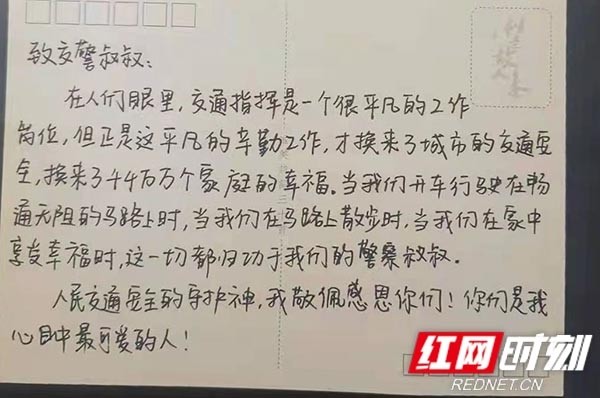 致交警叔叔：
在人们眼里，交通指挥是一个很平凡的工作
岗位，但正是这平凡的辛勤工作，才换来了城市的交通安
全，换来了千千万万个家庭的幸福。当我们开车行驶在畅
通无阻的马路上时，当我们在马路上散步时，当我们在家中
享受幸福时，这一切都归功于我们的警察叔叔。
人民交通安全的守护神，我敬佩感恩你们！你们是我
心目中最可爱的人！
红网时刻
REDNET.CN